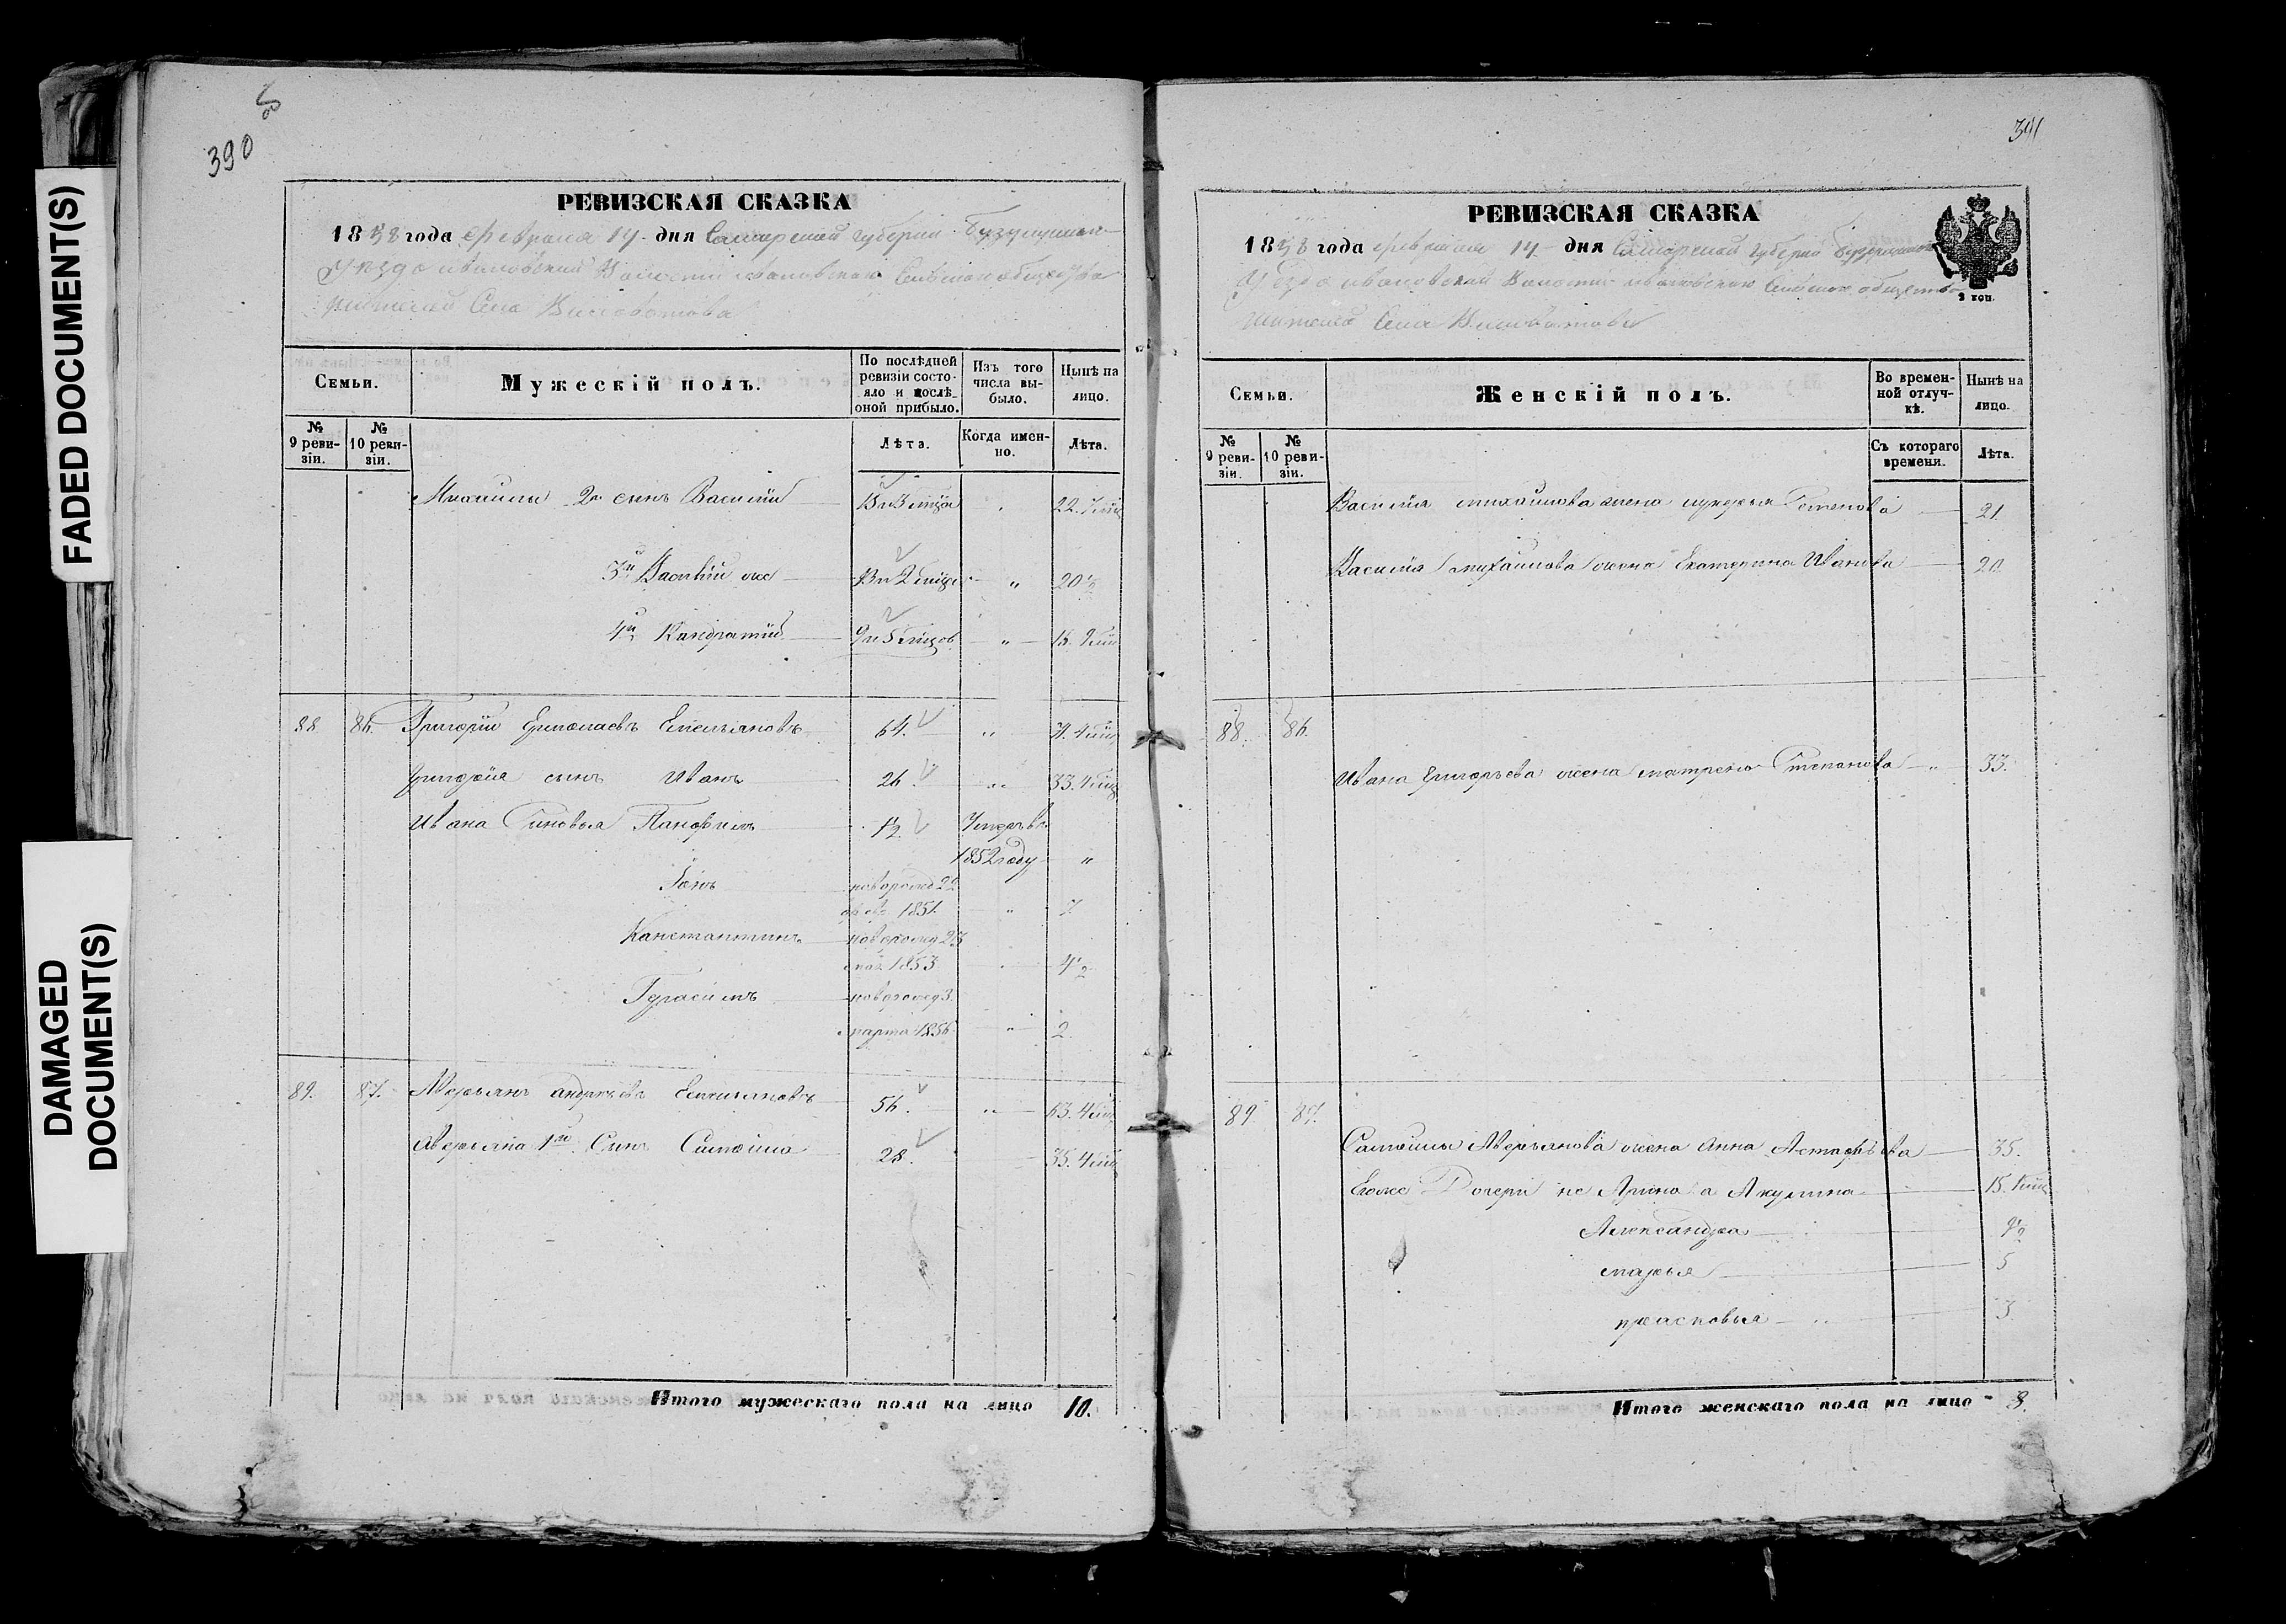 FADED DOCUMENT(S)
DAMAGED
DOCUMENT(S)
390
РЕВИЗСКАЯ СКАЗКА
1858 года Февраля 14 дня Самарской губернии Бузулукск
Уезда Ивановской Волости Ивановского Сельскаго общества
жителей Села Виловатова
Семьи.
Мужескій полъ.
По послѣдней ревизіи состояло и послѣ оной прибыло.
Изъ того числа выбыло.
Нынѣ на лицо.
№ 9 ревизіи.
№ 10 ревизіи.
Лѣта.
Когда именно.
Лѣта.
Михайлы 2й сынъ Василій
22.
3й Василій же
20½
4й Кандратий
9 и 5 мцов
88 86. Григорій Ермолаевъ Емельяновъ 64. „
Григорія сынъ Иванъ 26. „ 33. 4 мц
Ивана Сыновья Панфилъ ½ Умеръ въ
1852 году „
новорожд 22
1851. „ 7.
Канстантинъ новорожд 23
мая 1853 4½
Герасимъ новорожд 3.
марта 1856 „ 2.
89. 87. Аверьянъ андреевъ Емельяновъ 56. „ 63. 4 мц
Аверьяна 1й Сынъ Самойла 28. 35. 4 мц
Итого мужескаго пола на лицо 10.
391
РЕВИЗСКАЯ СКАЗКА
1858 года февраля 14 дня Самарской губернии Бузулукскаго
Уезда Ивановской Волости Ивановского Сельскаго общества
жителей Села Виловатова
2 коп.
Семьи.
Женскій полъ.
Во временной отлучкѣ.
Нынѣ на лицо.
№ 9 ревизіи.
№ 10 ревизіи.
Съ котораго времени.
Лѣта.
Василія михайлова жена лукерья Семенова 21.
Василія михайлова жена Екатерина Иванова 20
88. 86.
Ивана Григорьева жена матрена Степанова „ 33.
89. 87.
Самойлы Аверьянова жена Анна Астафьева 35.
Егоже Дочери Акулина 15.
Александра 9½
марья 5
прасковья 3
Итого женскаго пола на лицо 8.